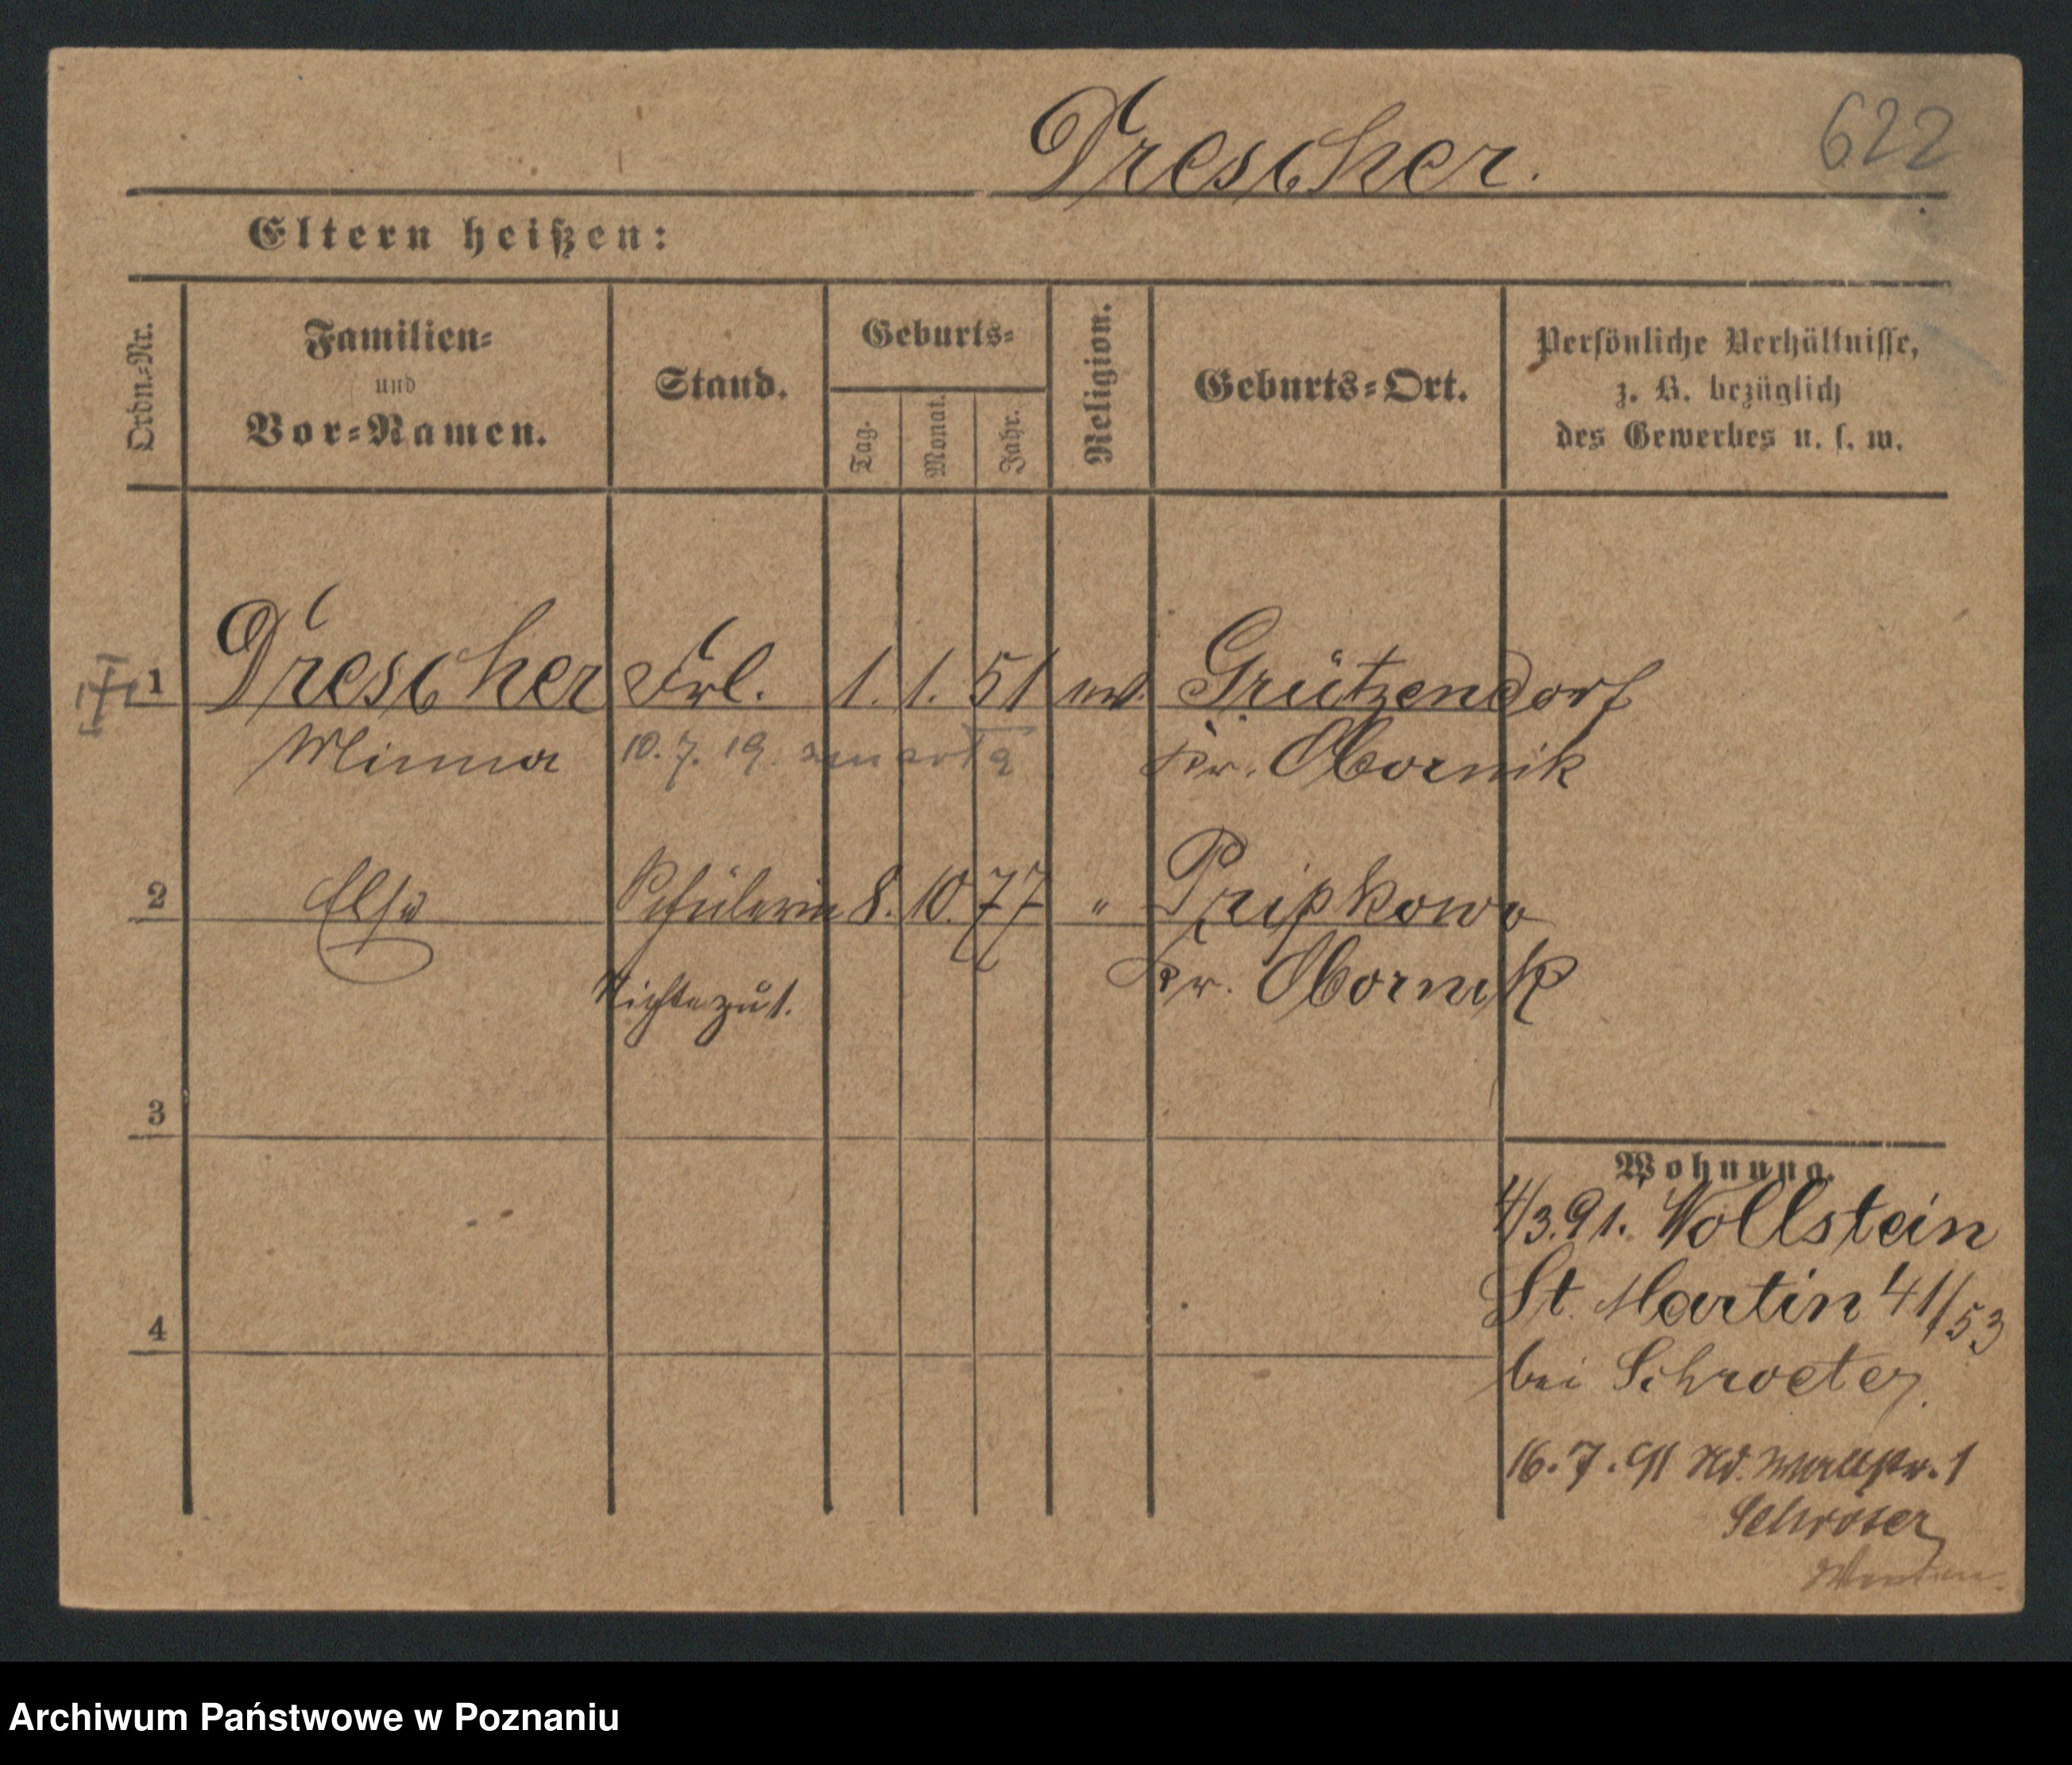 Drescher.
622
Eltern heißen:
Ordn.-Nr.
Familien-
und
Vor-Namen.
Stand.
Geburts-
Tag.
Monat.
Jahr.
Religion.
Geburts-Ort.
Persönliche Verhältnisse,
z. B. bezüglich
des Gewerbes u. s. w.
1 Drescher Frl. 1. 1. 51 Grützendorf
Minna 10. 7. 19. zmarła Kr. Obornik
2 Else Schülerin 8. 10. 77 " Pripkowo
Nichte zu 1. Kr. Obornik
3
Wohnung.
4/3.91. Wollstein
St. Martin 41/53
4
bei Schroeter.
16.7.91 Nd. Wallstr. 1
Schröter
Archiwum Państwowe w Poznaniu